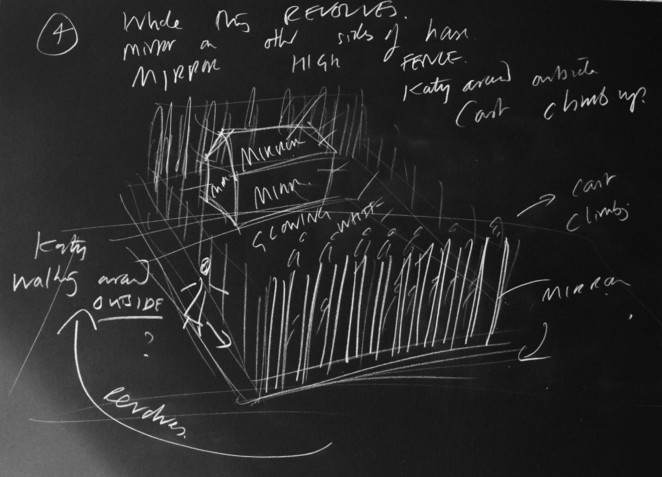 4
While this REVOLVES.
mirror on other sides of house
MIRROR HIGH FENCE.
Katy around outside
Cast climb up?
MIRROR
MIRR.
MIR
GLOWING WHITE
Cast
climbs
Katy
walking around
OUTSIDE
?
MIRROR
revolves.